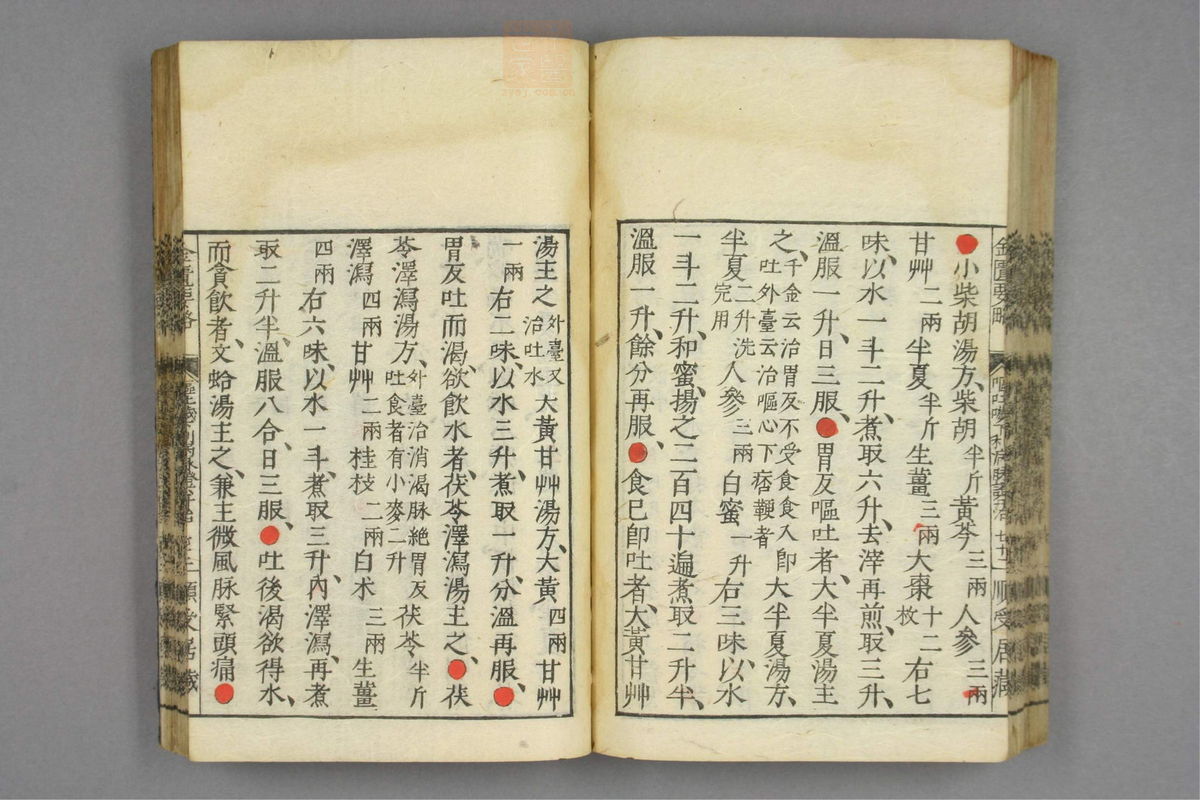 小柴胡湯方、柴胡半斤黃芩三兩人參三兩
甘艸二兩半夏半斤生薑三兩大棗十二枚右七
味、以水一斗二升、煮取六升、去滓再煎、取三升、
溫服一升、日三服、胃反嘔吐者、大半夏湯主
之、千金云治胃反不受食食入卽吐外臺云治嘔心下痞鞕者大半夏湯方、
半夏二升洗完用人參三兩白蜜一升右三味、以水
一斗二升、和蜜、揚之二百四十遍煮取二升半、
溫服一升、餘分再服、食已卽吐者、大黃甘艸
湯主之外臺又治吐水大黃甘艸湯方、大黃四兩甘艸
一兩右二味、以水三升、煮取一升、分溫再服、
胃反吐而渴、欲飲水者、茯苓澤瀉湯主之、茯
苓澤瀉湯方、外臺治消渴脉絶胃反吐食者有小麥二升茯苓半斤
澤瀉四兩甘艸二兩桂枝二兩白朮三兩生薑
四兩右六味、以水一斗、煮取三升、內澤瀉、再煮
取二升半、溫服八合、日三服、吐後渴欲得水、
而貪飲者、文蛤湯主之、兼主微風脉緊頭痛
金匱要略
順受居藏